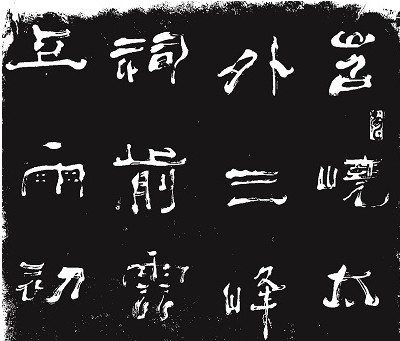 岧嶢太
外三峰
祠前雲
上雨初